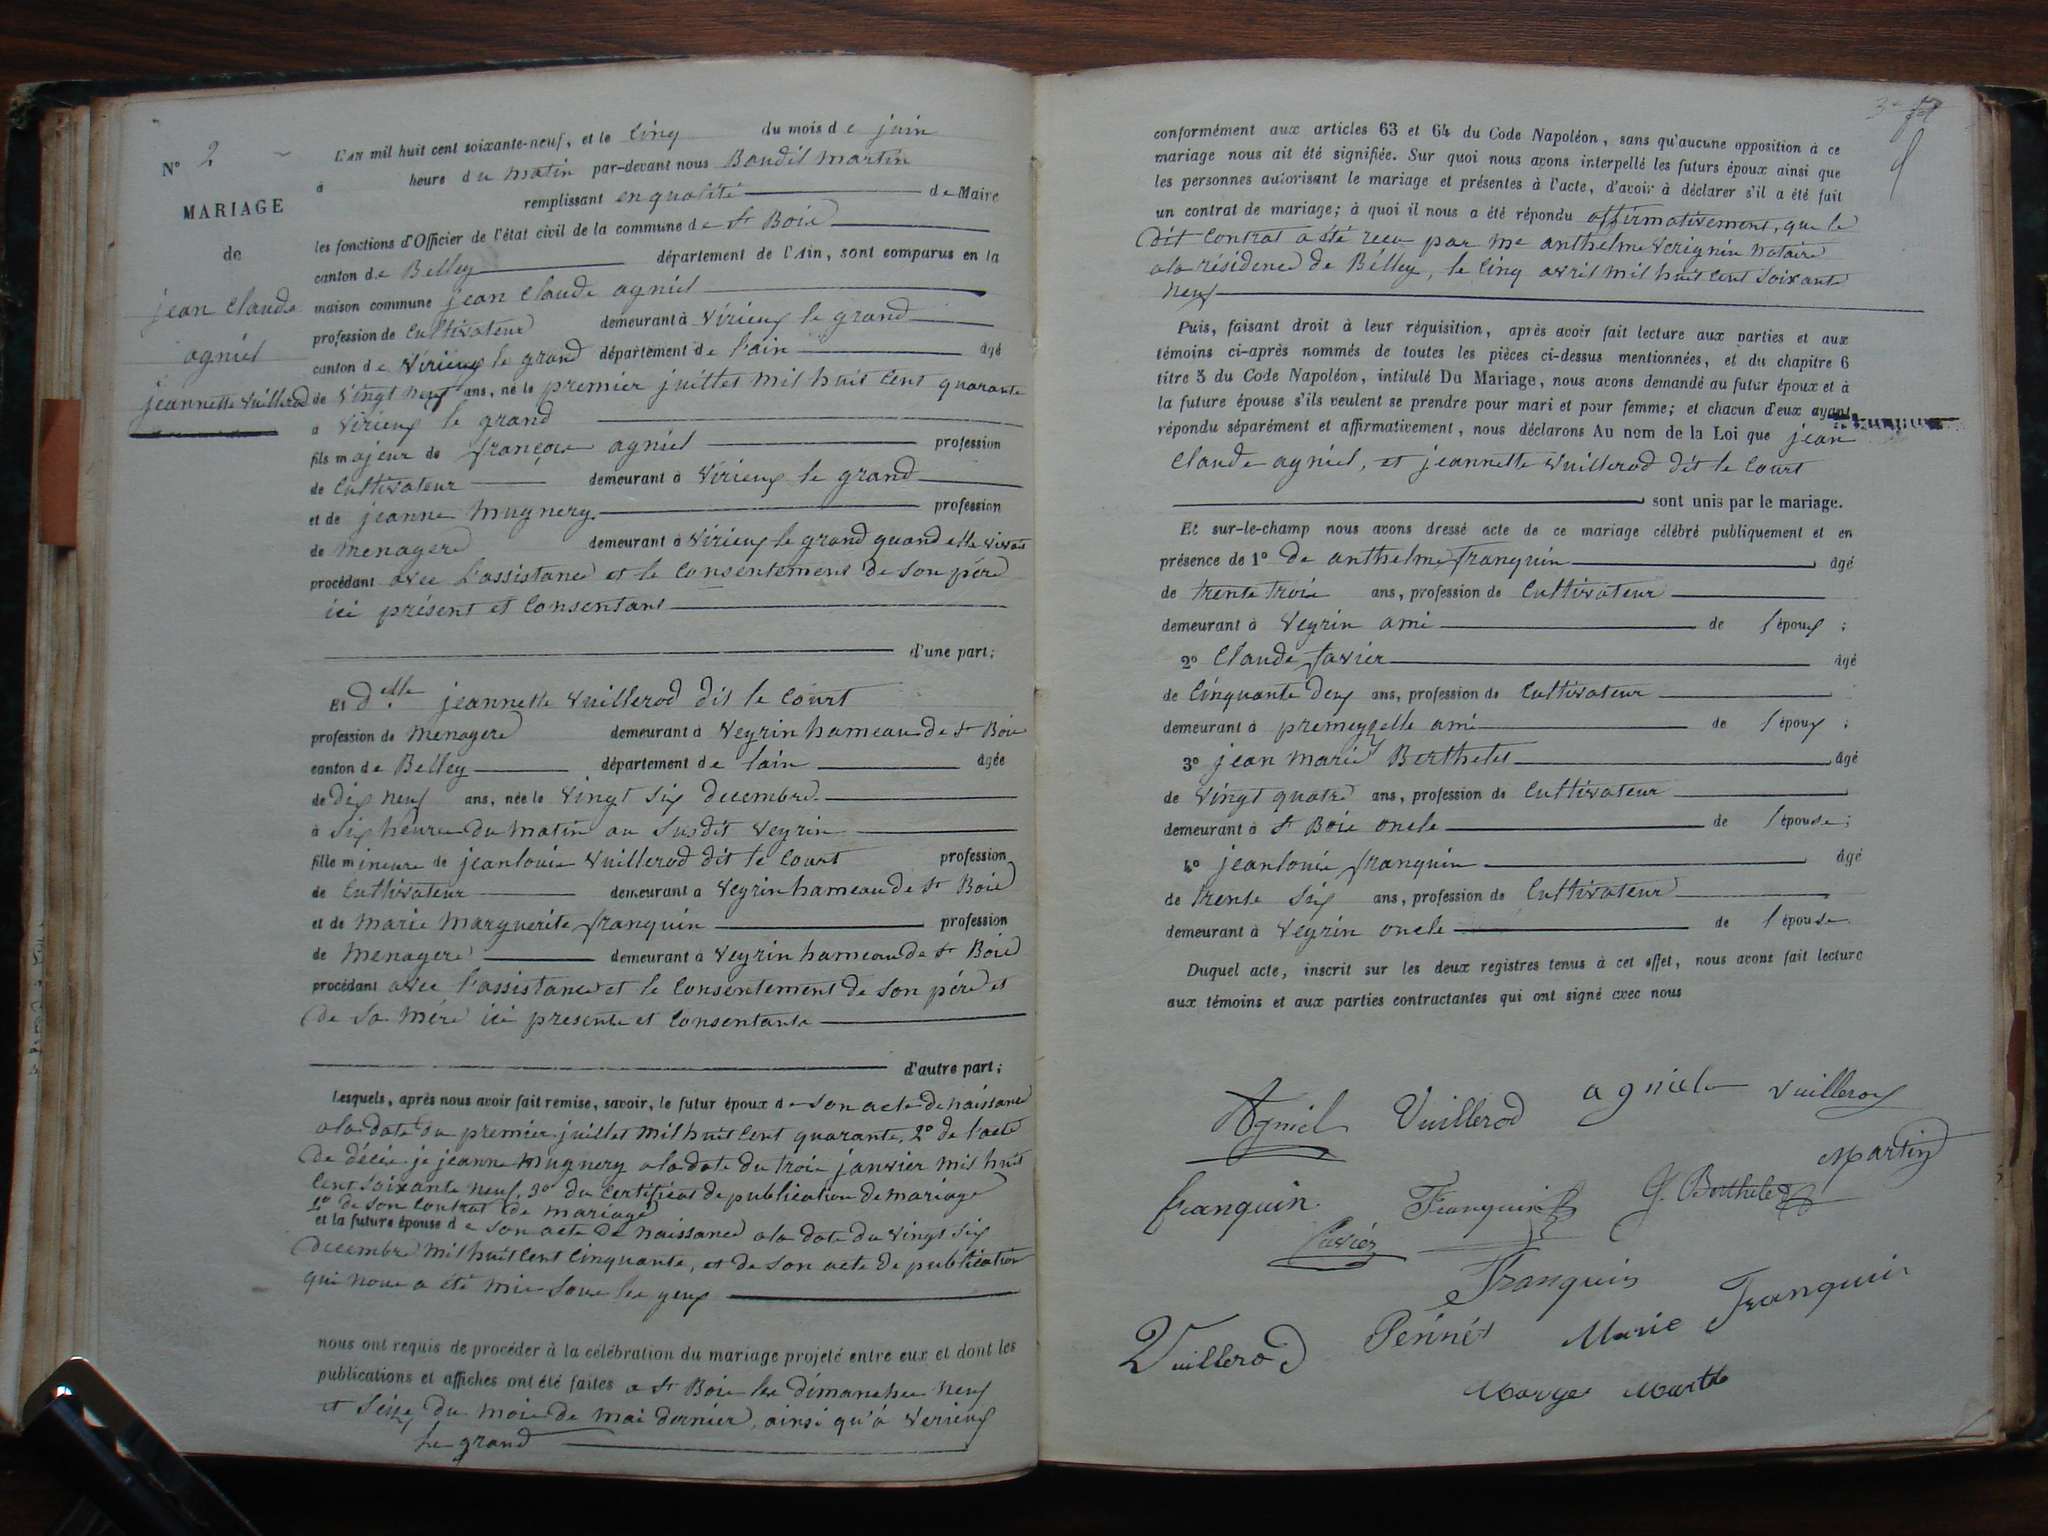 N° 2
MARIAGE
de
jean Claude
agniel
jeannette Vuillerod
L'AN mil huit cent soixante-neuf, et le Cinq du mois de juin
à heure du matin par-devant nous Baudil Martin
remplissant en qualité de Maire
les fonctions d'Officier de l'état civil de la commune de St Bois
canton de Belley département de l'Ain, sont comparus en la
maison commune jean Claude agniel
profession de Cultivateur demeurant à Virieux le grand
canton de Virieux le grand département de l'ain âgé
de Vingt neuf ans, né le premier juillet mil huit Cent quarante
à Virieux le grand
fils majeur de françois agniel profession
de Cultivateur demeurant à Virieux le grand
et de jeanne Mugnery profession
de Menagere demeurant à Virieux le grand quand elle vivait
procédant avec l'assistance et le Consentement de son pére
ici présent et Consentant
d'une part;
Et delle jeannette Vuillerod dit le Court
profession de Menagere demeurant à Veyrin hameau de St Bois
canton de Belley département de l'ain âgée
de Dix neuf ans, née le Vingt Six decembre
à Six heure du matin au Susdit Veyrin
fille mineure de jeanlouis Vuillerod dit le Court profession
de Cultivateur demeurant à Veyrin hameau de St Bois
et de Marie Marguerite franquin profession
de Menagere demeurant à Veyrin hameau de St Bois
procédant avec l'assistance et le Consentement de son pére et
de Sa Mére ici presente et Consentante
d'autre part;
Lesquels, après nous avoir fait remise, savoir, le futur époux de Son acte de Naissance
a la date du premier juillet Mil huit Cent quarante, 2° de l'acte
De décés je jeanne Mugnery a la date du trois janvier Mil huit
Cent Soixante neuf, 3° du Certificat de publication de mariage
de Son Contrat de Mariage
et la future épouse de Son acte de Naissance a la date du Vingt Six
decembre Mil huit Cent Cinquante, et de Son acte de publication
qui nous a été mis sous les yeux
nous ont requis de procéder à la célébration du mariage projeté entre eux et dont les
publications et affiches ont été faites a St Bois les dimanches neuf
et Seize du mois de mai dernier, ainsi qu'à Verieux
le grand
conformément aux articles 63 et 64 du Code Napoléon, sans qu'aucune opposition à ce
mariage nous ait été signifiée. Sur quoi nous avons interpellé les futurs époux ainsi que
les personnes autorisant le mariage et présentes à l'acte, d'avoir à déclarer s'il a été fait
un contrat de mariage; à quoi il nous a été répondu affirmativement, que le
dit Contrat a été recu par Me anthelme Verignin Notaire
a la résidence de Bélley, le Cinq avril mil huit Cent Soixante
Neuf
Puis, faisant droit à leur réquisition, après avoir fait lecture aux parties et aux
témoins ci-après nommés de toutes les pièces ci-dessus mentionnées, et du chapitre 6
titre 5 du Code Napoléon, intitulé Du Mariage, nous avons demandé au futur époux et à
la future épouse s'ils veulent se prendre pour mari et pour femme; et chacun d'eux ayant
répondu séparément et affirmativement, nous déclarons Au nom de la Loi que jean
Claude agniel, et jeannette Vuillerod dit le Court
sont unis par le mariage.
Et sur-le-champ nous avons dressé acte de ce mariage célébré publiquement et en
présence de 1° De anthelme franquin âgé
de trente trois ans, profession de Cultivateur
demeurant à Veyrin ami de l'époux;
2° Claude favier âgé
de Cinquante deux ans, profession de Cultivateur
demeurant à premeyzelle ami de l'époux;
3° jean Marie Berthelet âgé
de Vingt quatre ans, profession de Cultivateur
demeurant à St Bois oncle de l'épouse;
4° jeanlouis franquin âgé
de trente Six ans, profession de Cultivateur
demeurant à Veyrin oncle de l'épouse
Duquel acte, inscrit sur les deux registres tenus à cet effet, nous avons fait lecture
aux témoins et aux parties contractantes qui ont signé avec nous
Agniel Vuillerod agniel Vuillerod
Martin
franquin Franquin J. Berthelet
favier
Franquin
Vuillerod Pennet Marie Franquin
Marthe